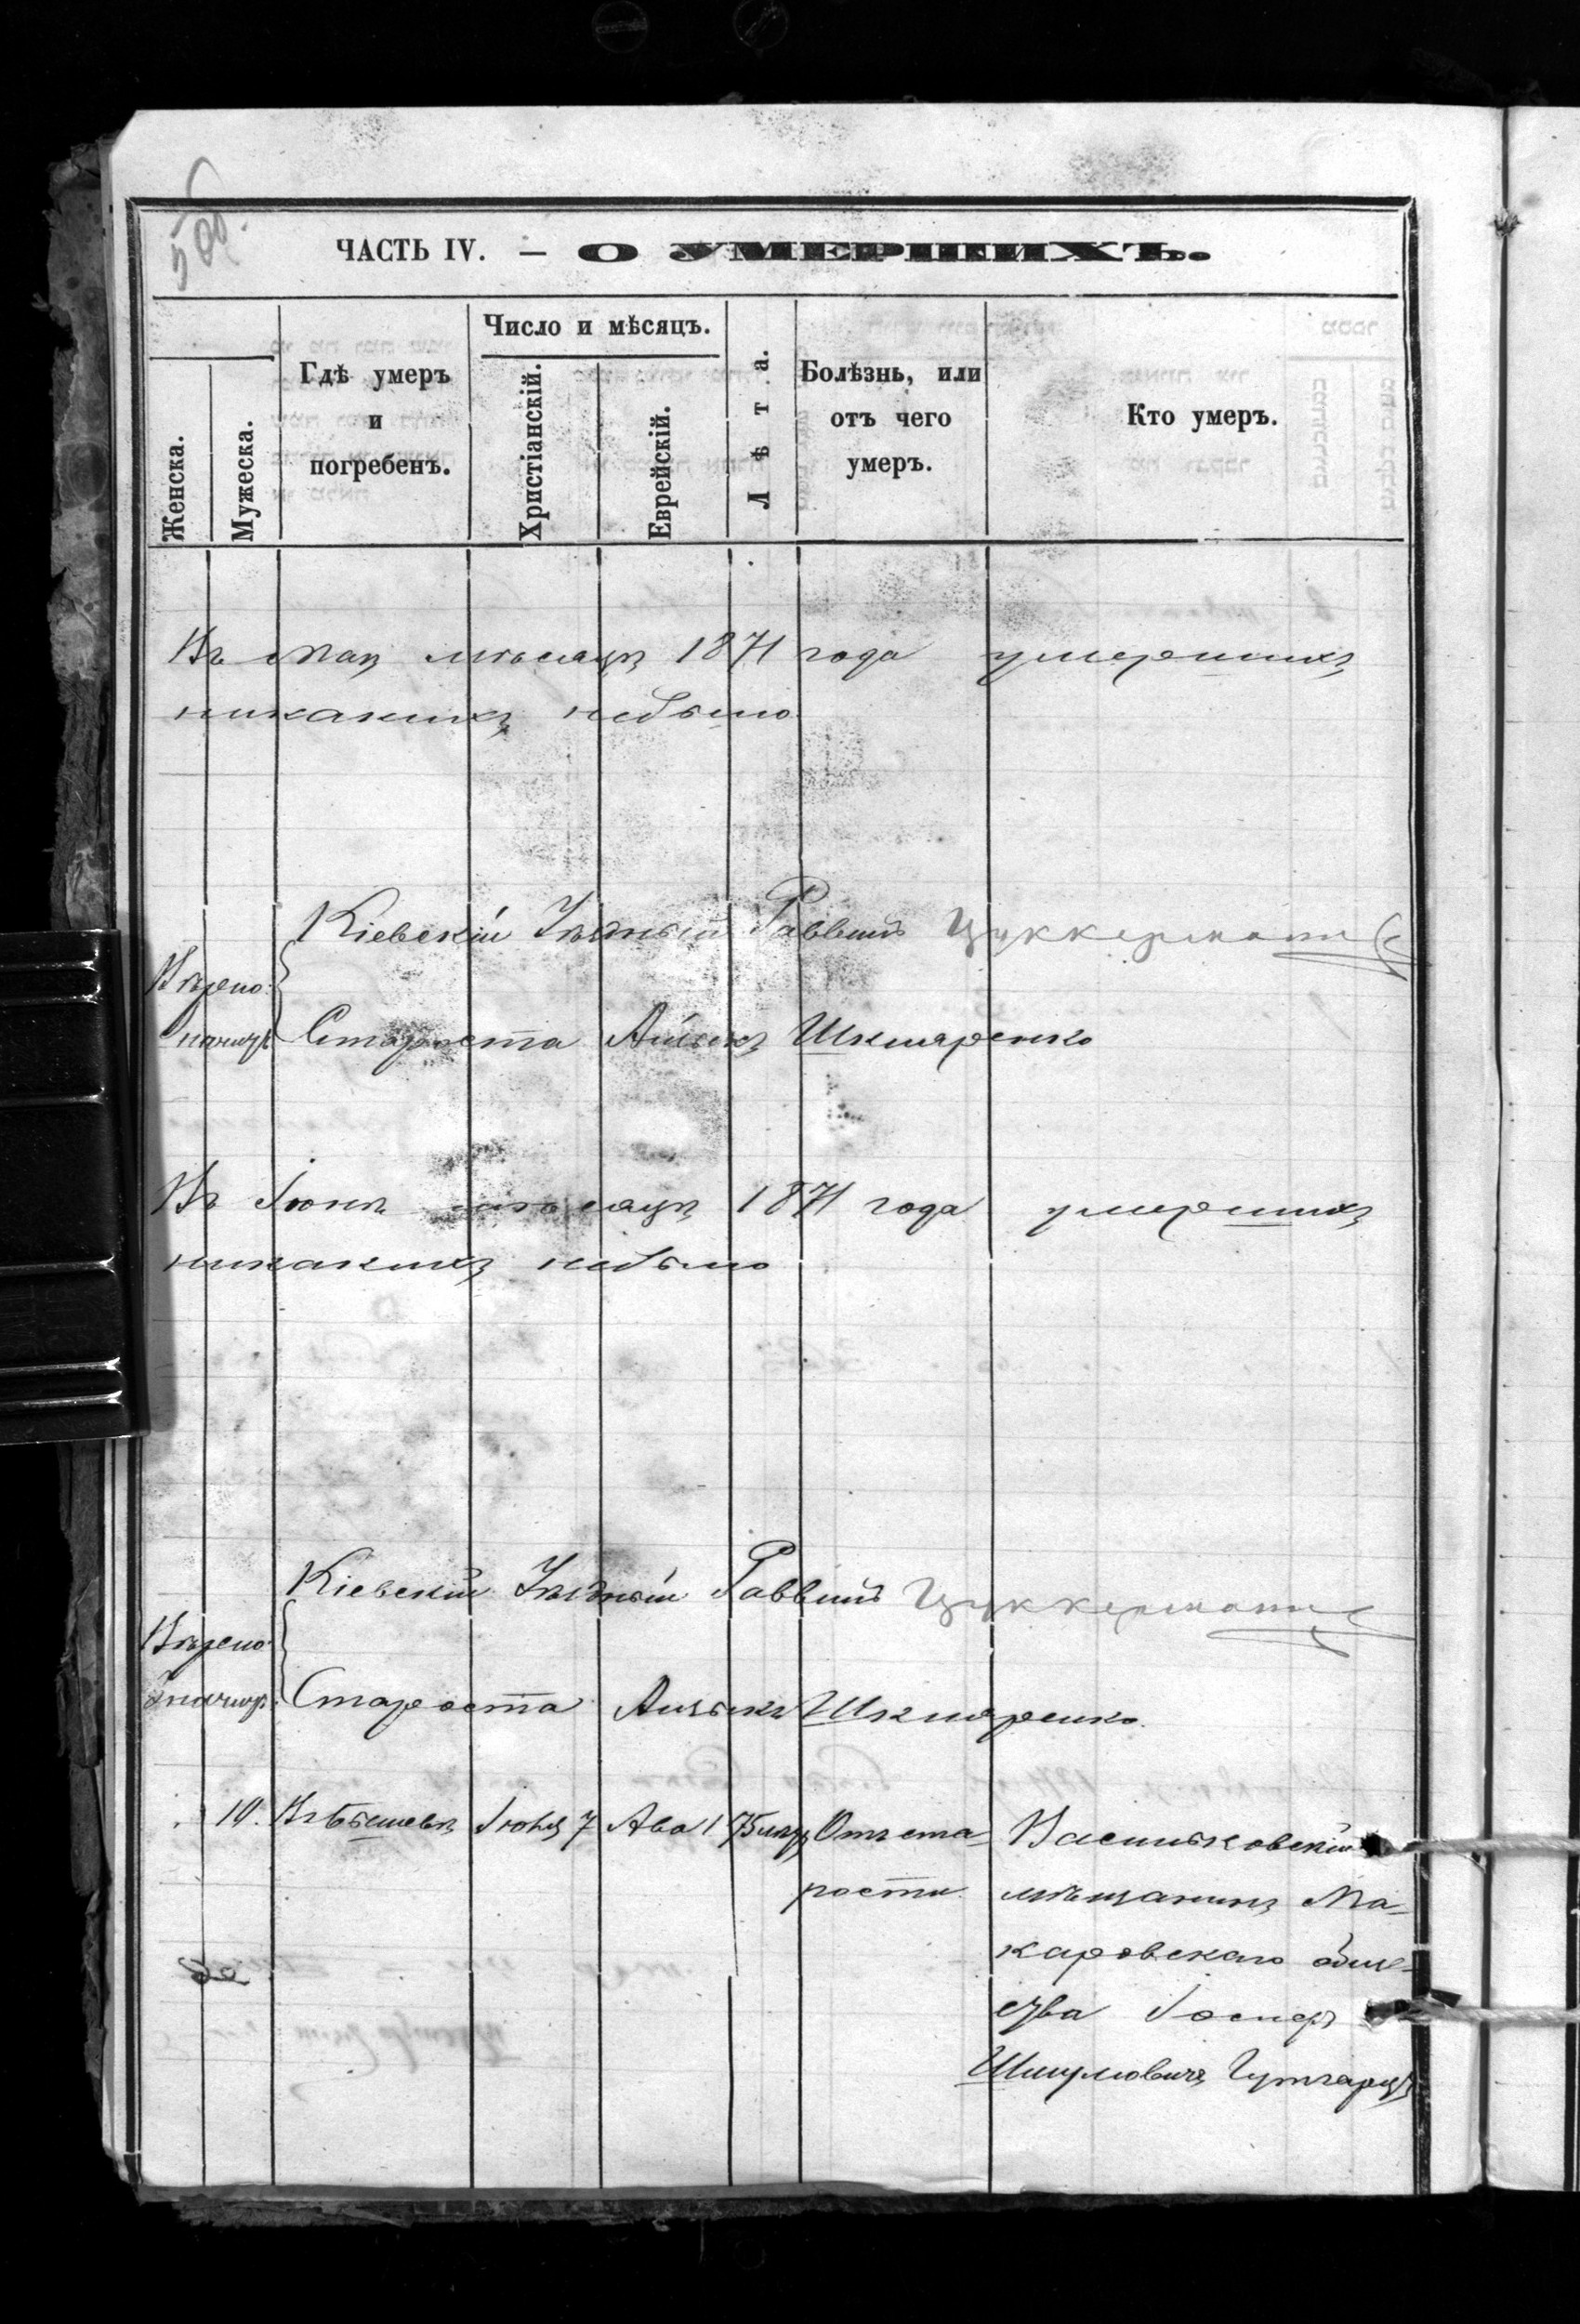 ЧАСТЬ IV. — О УМЕРШИХЪ.
Женска.
Мужеска.
Гдѣ умеръ
и
погребенъ.
Число и мѣсяцъ.
Христіанскій.
Еврейскій.
Лѣта.
Болѣзнь, или
отъ чего
умеръ.
Кто умеръ.
Въ Маѣ мѣсяцѣ 1871 года умершихъ
никакихъ небыло
Кіевскій Уѣздный Раввинъ Цуккерманъ
Вѣрено
Староста Айзикъ Шкляренко
Въ Іюнѣ мѣсяцѣ 1871 года умершихъ
никакихъ небыло
Кіевскій Уѣздный Раввинъ Цуккерманъ
Вѣрено
Староста Айзикъ Шкляренко.
10. Іюля 7 Ава 1 75 Отъ ста-
рости.
Васильковскій
мѣщанинъ Ма-
каровскаго обще-
ства
Шмулювичъ